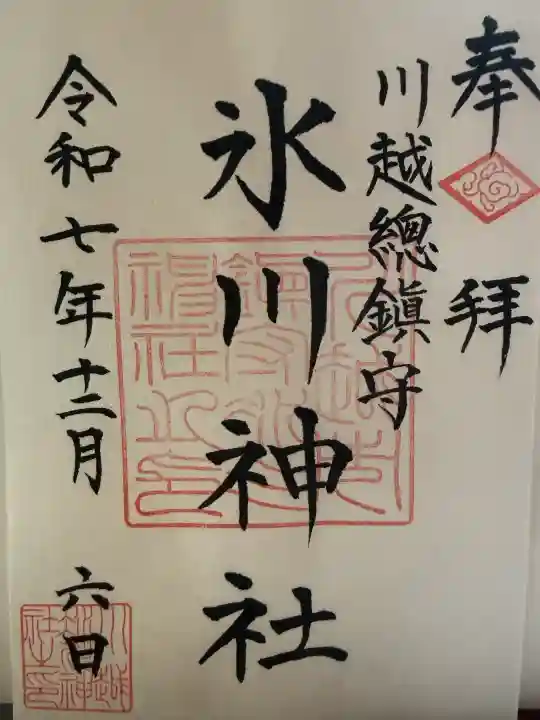 奉拝
川越總鎮守
氷川神社
令和七年十二月六日